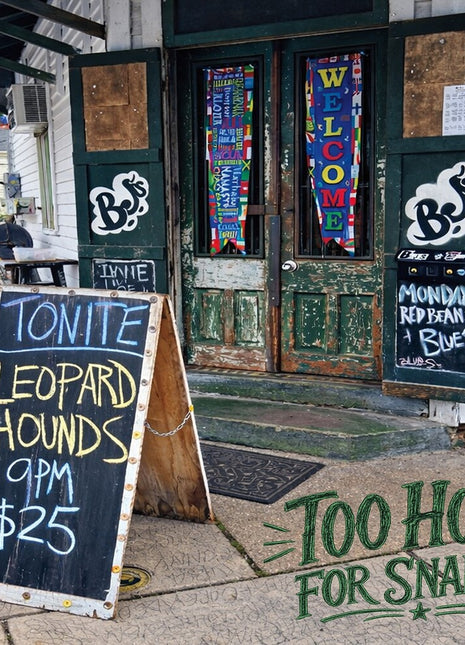 WELCOME
BJ's
BJ's
INVIE
TONITE
LEOPARD
HOUNDS
9PM
$25
MONDA
RED BEAN
& BLUE
BLUES
TOO HO
FOR SNA